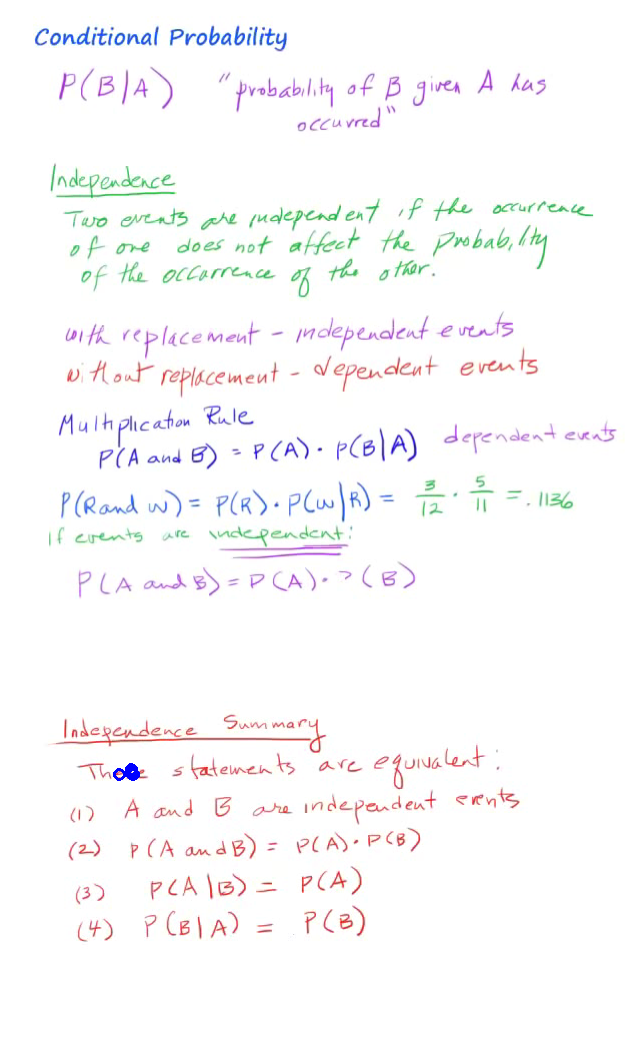 Conditional Probability
P(B|A) "probability of B given A has
occurred"
Independence
Two events are independent if the occurrence
of one does not affect the probability
of the occurrence of the other.
with replacement - independent events
without replacement - dependent events
Multiplication Rule
P(A and B) = P(A) · P(B|A) dependent events
P(R and W) = P(R) · P(W|R) = 3/12 · 5/11 = .1136
if events are independent:
P(A and B) = P(A) · P(B)
Independence Summary
statements are equivalent:
(1) A and B are independent events
(2) P(A and B) = P(A) · P(B)
(3) P(A|B) = P(A)
(4) P(B|A) = P(B)